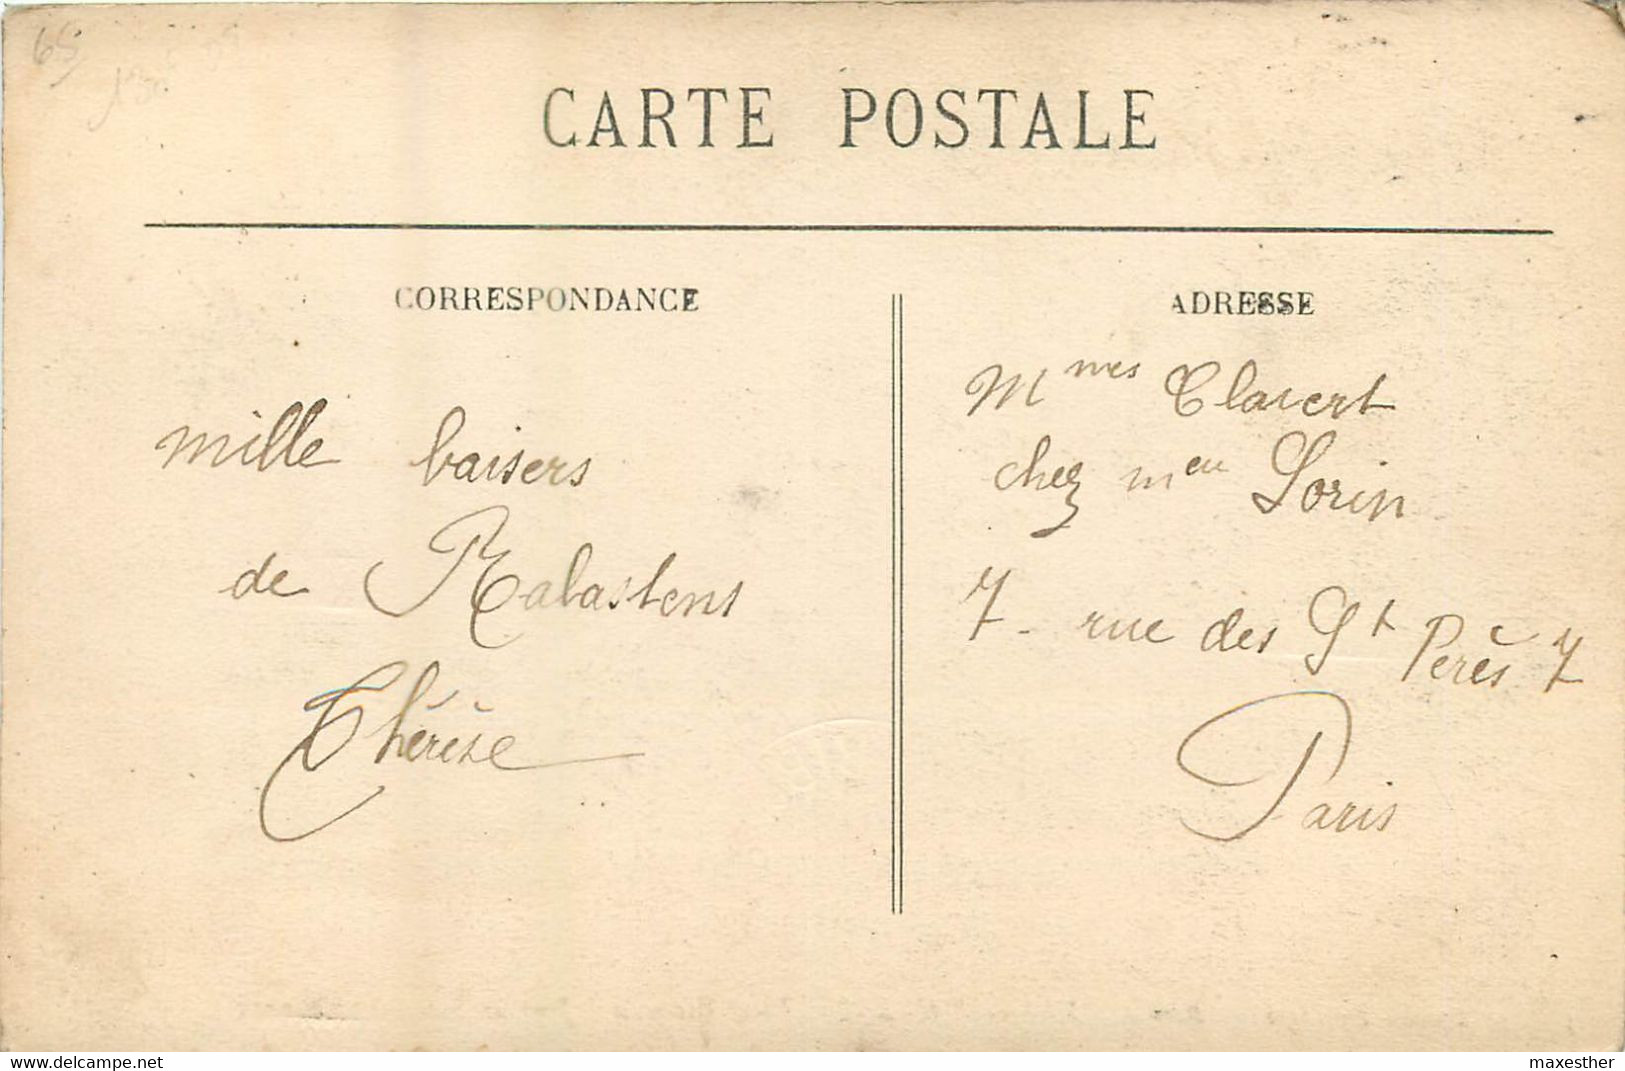 65
CARTE POSTALE
CORRESPONDANCE
mille baisers
de Rabastens
Thérèse
ADRESSE
Mmes Clavert
chez meu Lorin
7 - rue des St Perès 7
Paris
www.delcampe.net
maxesther